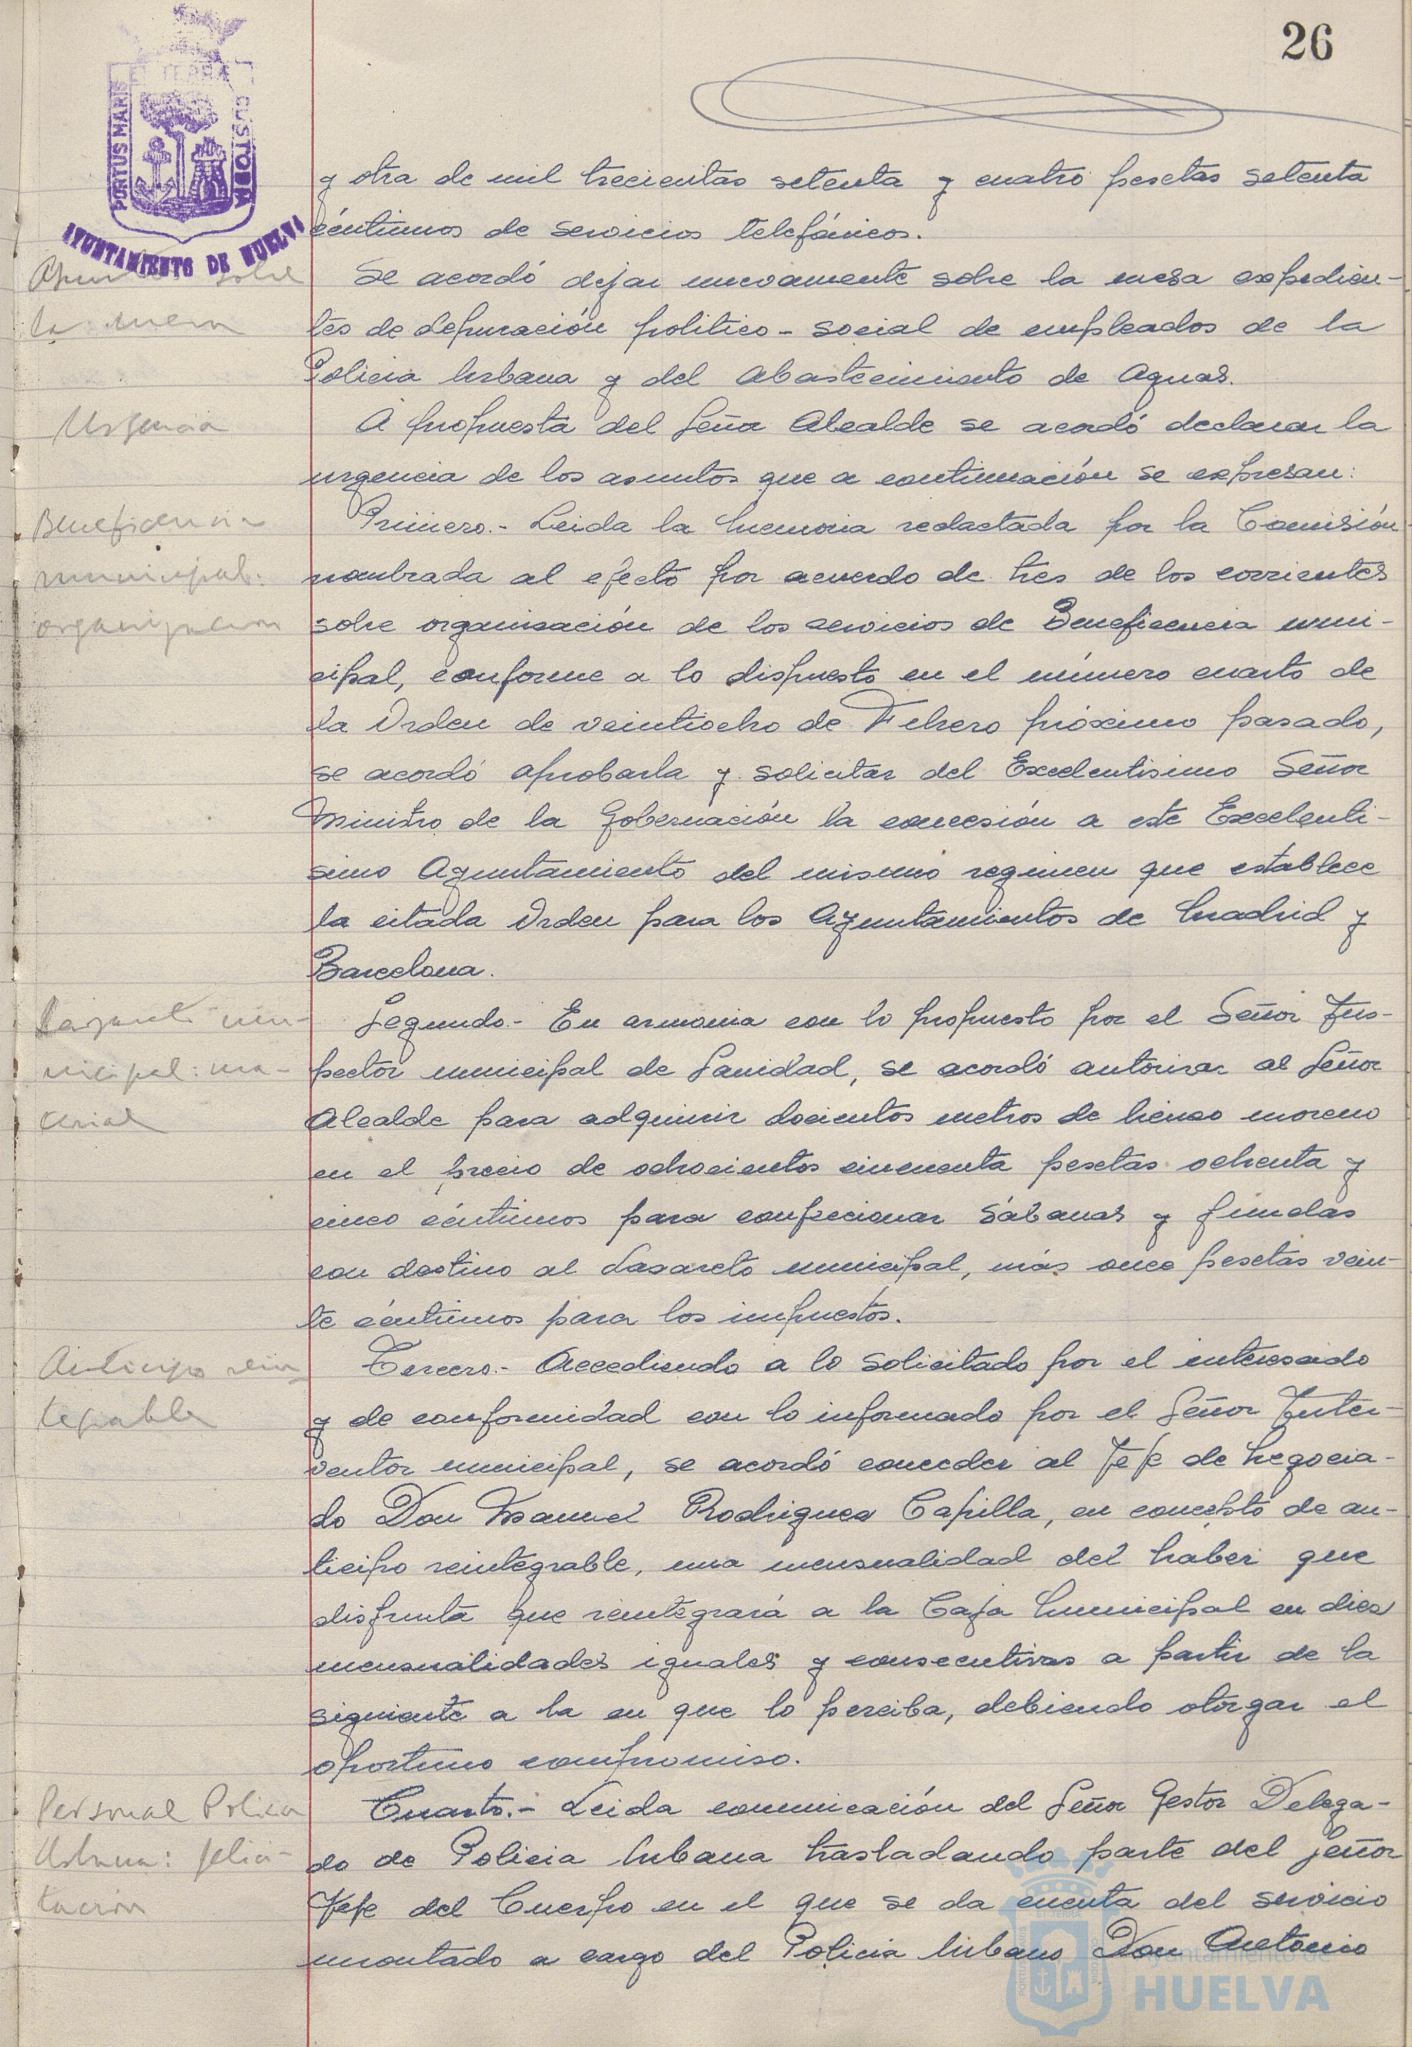 26
PORTUS MARIS ET TERRÆ CUSTODIA
AYUNTAMIENTO DE HUELVA
y otra de mil trecientas setenta y cuatro pesetas setenta
céntimos de servicios telefónicos.
sobre
la mesa
Se acordó dejar nuevamente sobre la mesa expedien-
tes de depuración politico-social de empleados de la
Policia Urbana y del Abastecimiento de Aguas.
Urgencia
A propuesta del Señor Alcalde se acordó declarar la
urgencia de los asuntos que a continuación se expresan:
Beneficencia
municipal:
organización
Primero.- Leida la Memoria redactada por la Comisión
nombrada al efecto por acuerdo de tres de los corrientes
sobre organización de los servicios de Beneficencia muni-
cipal, conforme a lo dispuesto en el número cuarto de
la Orden de veintiocho de Febrero próximo pasado,
se acordó aprobarla y solicitar del Excelentisimo Señor
Ministro de la Gobernación la concesión a este Excelenti-
simo Ayuntamiento del mismo regimen que establece
la citada Orden para los Ayuntamientos de Madrid y
Barcelona.
mu-
nicipal: ma-
terial
Segundo.- En armonia con lo propuesto por el Señor Ins-
pector municipal de Sanidad, se acordó autorizar al Señor
Alcalde para adquirir docientos metros de lienzo moreno
en el precio de ochocientos cincuenta pesetas ochenta y
cinco céntimos para confeccionar sábanas y fundas
con destino al Lazareto municipal, más once pesetas vein-
te céntimos para los impuestos.
Anticipo rein
tegrable
Tercero.- Accediendo a lo solicitado por el interesado
y de conformidad con lo informado por el Señor Inter-
ventor municipal, se acordó conceder al Jefe de Negocia-
do Don Manuel Rodriguez Capilla, en concepto de an-
ticipo reintegrable, una mensualidad del haber que
disfruta que reintegrará a la Caja Municipal en diez
mensualidades iguales y consecutivas a partir de la
siguiente a la en que lo perciba, debiendo otorgar el
oportuno compromiso.
Personal Policia
Urbana: felici-
tación
Cuarto.- Leida comunicación del Señor Gestor Delega-
do de Policia Urbana trasladando parte del Señor
Jefe del Cuerpo en el que se da cuenta del servicio
montado a cargo del Policia Urbano Don Antonio
Ayuntamiento de
HUELVA